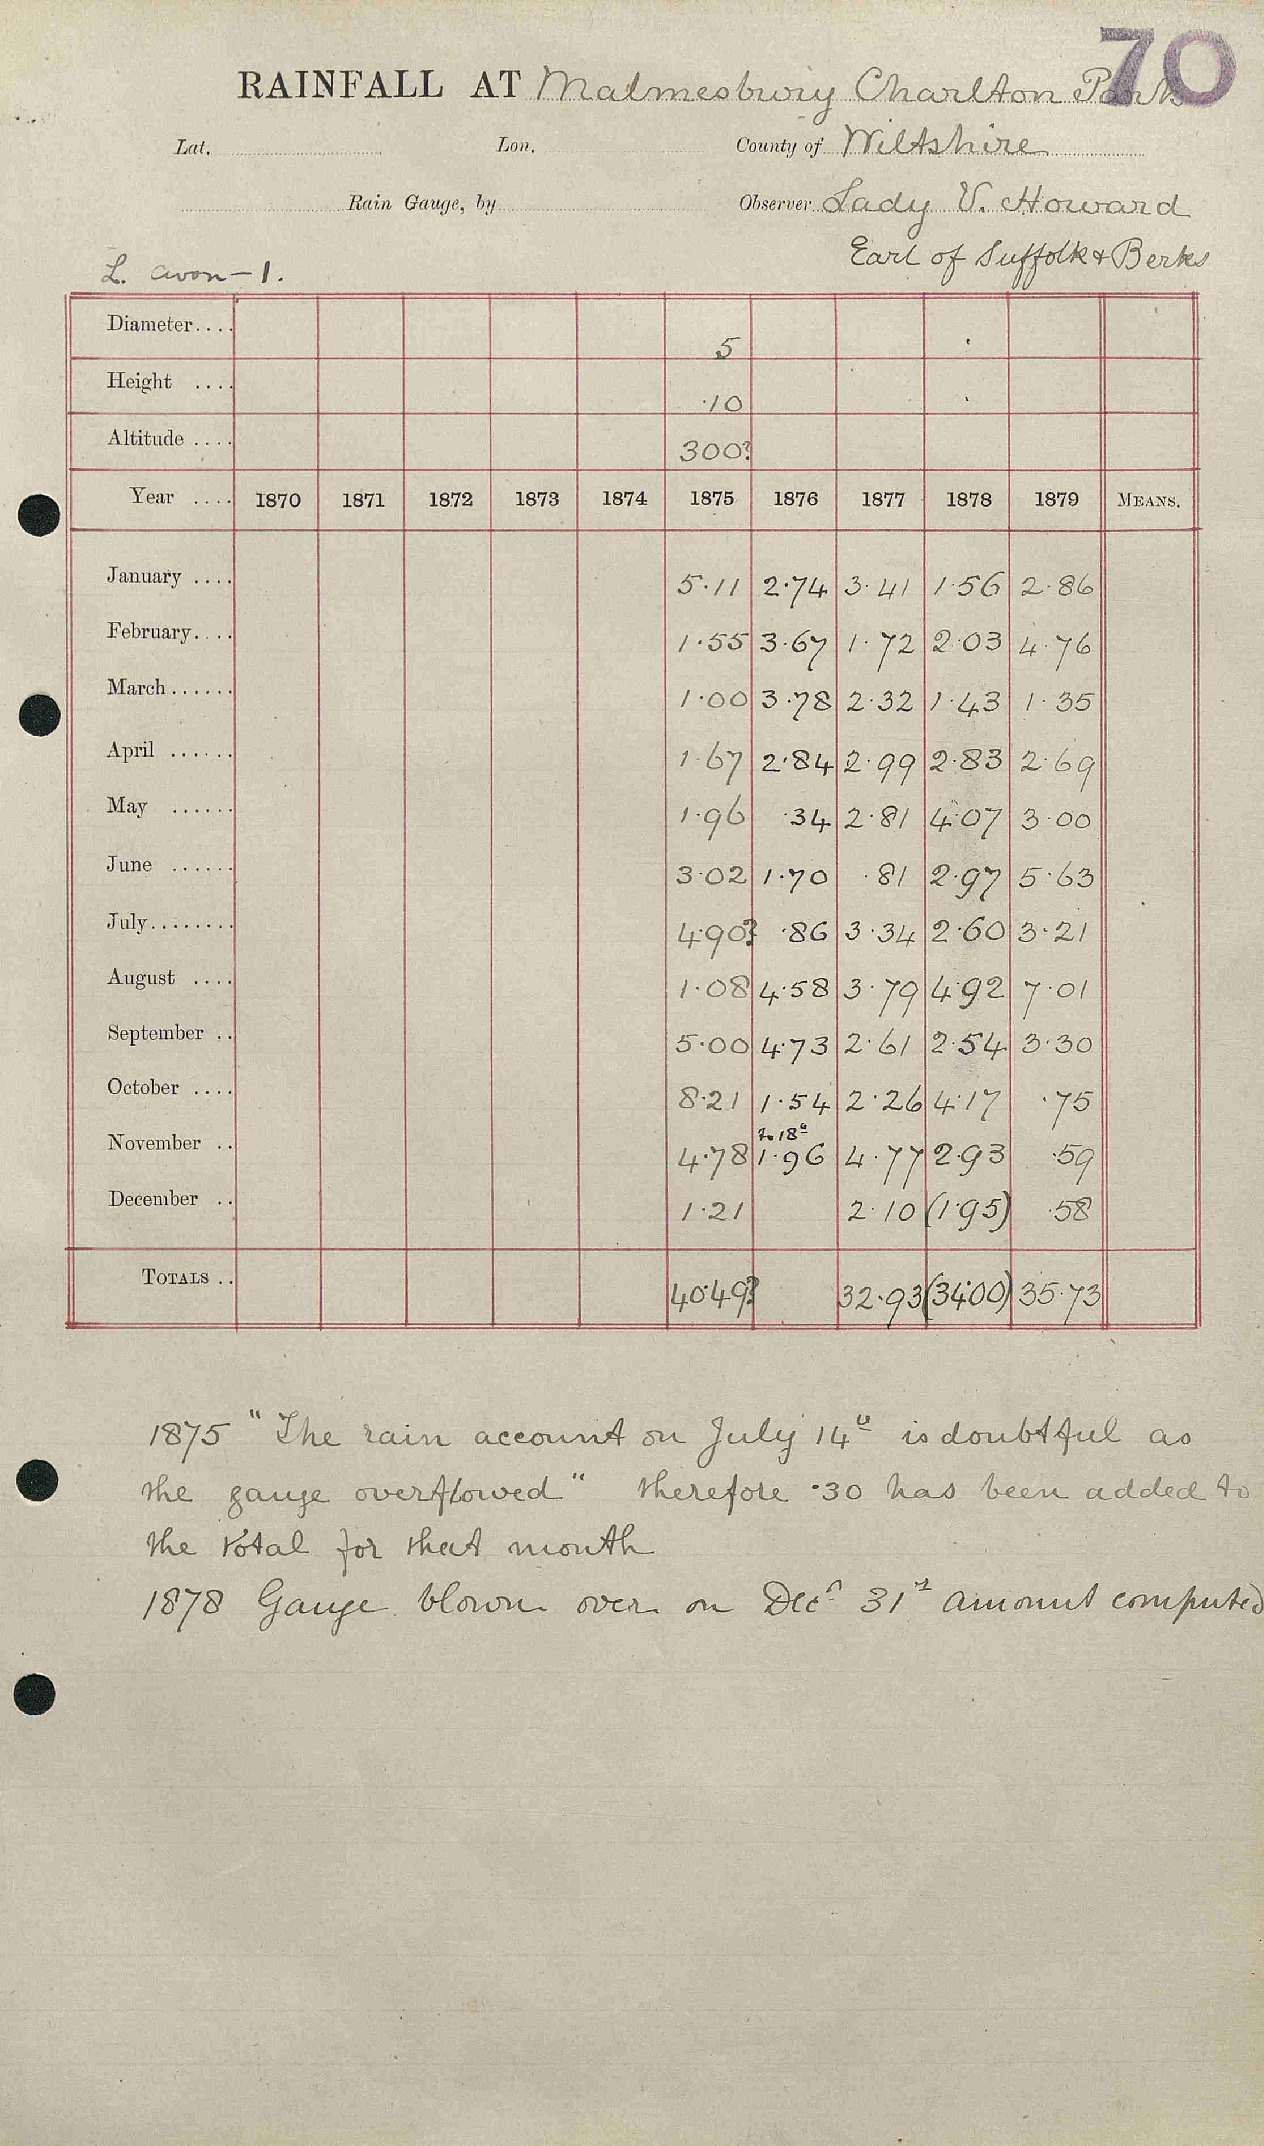 70
RAINFALL AT Malmesbury Charlton Park
Lat. Lon. County of Wiltshire
Rain Gauge, by Observer Lady V. Howard
Earl of Suffolk & Berks
L. Avon - 1.
Diameter.... 5
Height .... ·10
Altitude .... 300?
Year .... 1870 1871 1872 1873 1874 1875 1876 1877 1878 1879 MEANS.
January .... 5·11 2·74 3·41 1·56 2·86
February.... 1·55 3·67 1·72 2·03 4·76
March...... 1·00 3·78 2·32 1·43 1·35
April ...... 1·67 2·84 2·99 2·83 2·69
May ...... 1·96 ·34 2·81 4·07 3·00
June ...... 3·02 1·70 ·81 2·97 5·63
July........ 4·90? ·86 3·34 2·60 3·21
August .... 1·08 4·58 3·79 4·92 7·01
September .. 5·00 4·73 2·61 2·54 3·30
October .... 8·21 1·54 2·26 4·17 ·75
to 18th
November .. 4·78 1·96 4·77 2·93 ·59
December .. 1·21 2·10 (1·95) ·58
TOTALS .. 40·49? 32·93 (34·00) 35·73
1875 "The rain account on July 14th is doubtful as
the gauge overflowed" therefore ·30 has been added to
the total for that month
1878 Gauge blown over on Decr 31st amount computed